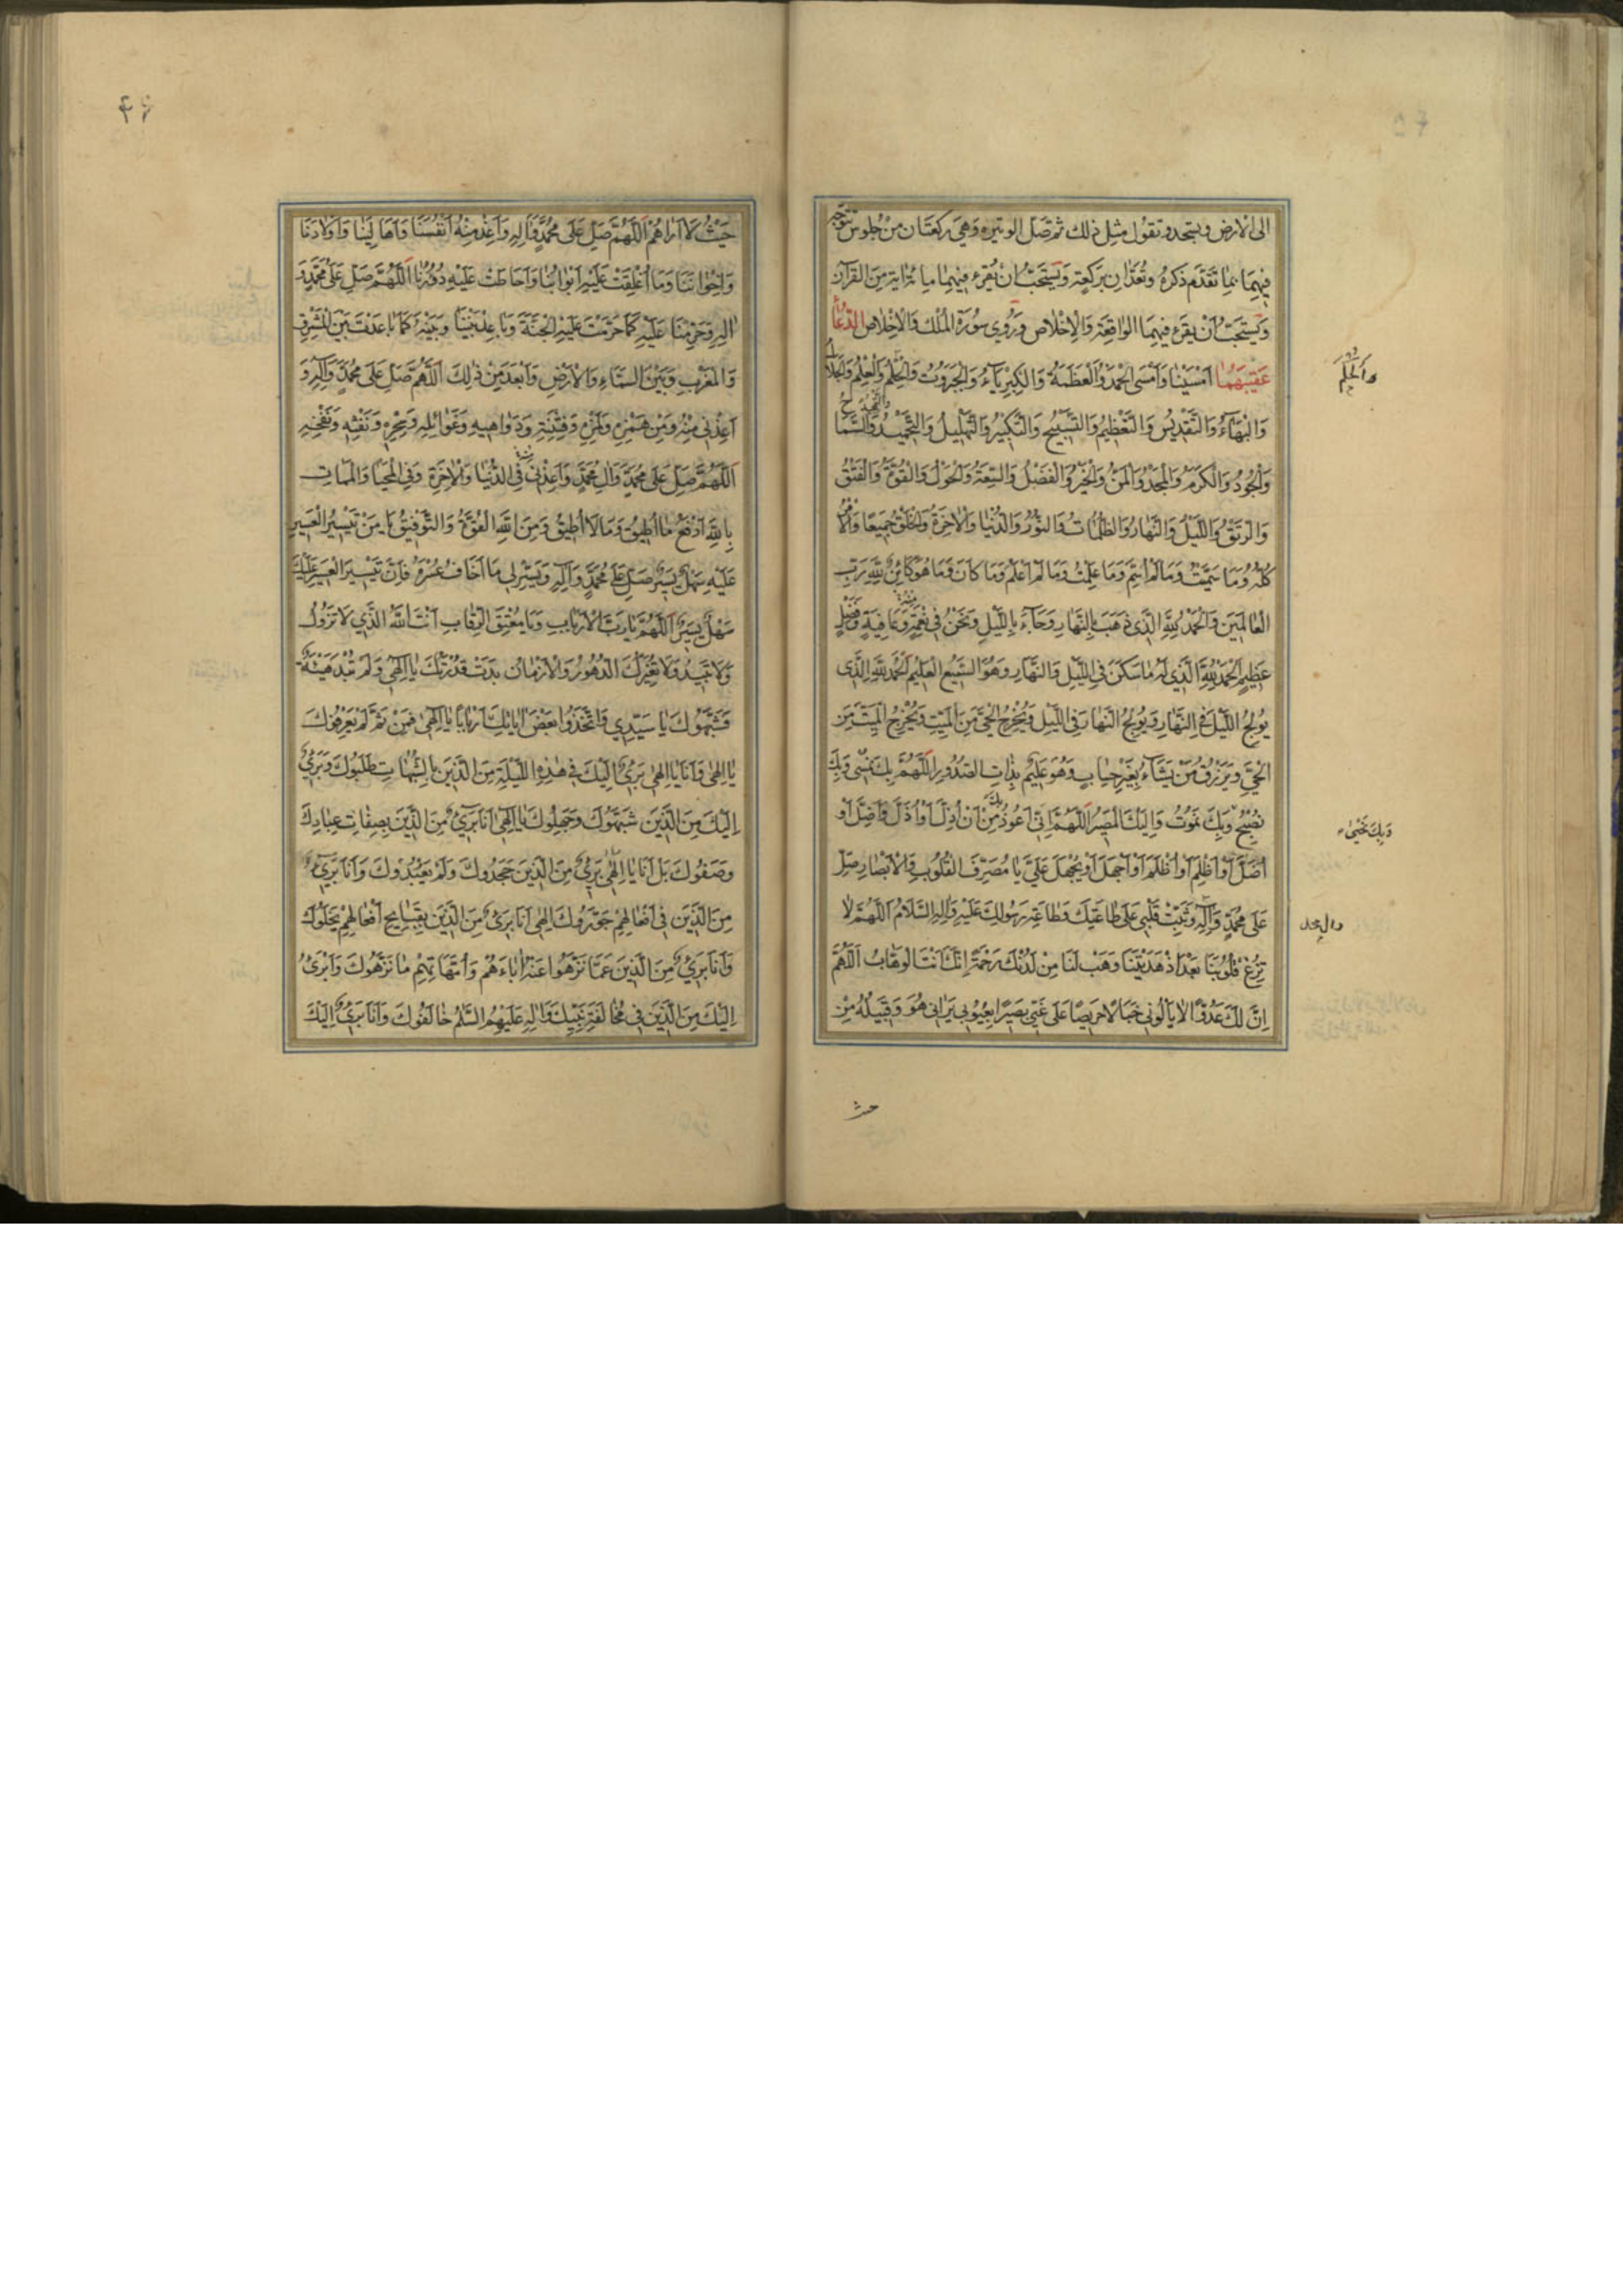 الى الارض ويسجد وتقول مثل ذلك ثم صل الوتيره وهي ركعتان من جلوس تتوجه
فيهما بما تقدم ذكره وتعدان بركعة ويستحب ان يقرء فيهما مائة اية من القرآن
ويستحب أن يقرء فيهما الواقعة والاخلاص وروى سورة الملك والاخلاص الدعاء
عقيبهما امسينا وامسى الحمد والعظمة والكبرياء والجبروت والحلم والعلم والجلال
والحلم
والبهاء والتقديس والتعظيم والتسبيح والتكبير والتهليل والتحميد والسماح
والجود والكرم والمجد والمن والخير والفضل والسعة والحول والقوة والفتق
والرتق والليل والنهار والظلمات والنور والدنيا والاخرة والخلق جميعا والامر
كله وما سميت وما لم اسم وما علمت وما لم اعلم وما كان وما هو كائن لله رب
العالمين والحمد لله الذى ذهب بالنهار وجاء بالليل ونحن في نعمة وعافية وفضل
عظيم الحمد لله الذي له ما سكن في الليل والنهار وهو السميع العليم الحمد لله الذى
يولج الليل في النهار ويولج النهار في الليل ويخرج الحي من الميت ويخرج الميت من
الحي ويرزق من يشاء بغير حساب وهو عليم بذات الصدور اللهم بك نمسي وبك
نصبح وبك نموت واليك المصير اللهم اني اعوذ بك من ان اذل او اذل او اضل او
وبك نحيى
أضل أو أظلم أو أظلم أو أجهل أو يجهل علي يا مصرف القلوب والابصار صل
على محمد وآله وثبت قلبي على طاعتك وطاعة رسولك عليه واله السلام اللهم لا
وال محمد
تزغ قلوبنا بعد اذ هديتنا وهب لنا من لدنك رحمة انك انت الوهاب اللهم
ان لك عدوا لا يألوني خبالا حريصا على غيي بصيرا بعيوبي يراني هو وقبيله من
حيث
۴۶
حيث لا اراهم اللهم صل على محمد واله واعذ منه انفسنا واهالينا واولادنا
واخواننا وما أغلقت عليه ابوابنا واحاطت عليه دورنا اللهم صل على محمد و
اله وحرمنا عليه كما حرمت عليه الجنة وباعد بيننا وبينه كما باعدت بين المشرق
والمغرب وبين السماء والارض وابعد من ذلك اللهم صل على محمد وآله و
اعذني منه ومن همزه ولمزه وفتنته ودواهيه وغوائله وسحره ونفثه ونفخه
اللهم صل على محمد وال محمد واعذني منه في الدنيا والاخرة وفي المحيا والممات
بالله ادفع ما أطيق وما لا أطيق ومن الله القوة والتوفيق يا من تيسير العسير
عليه سهل يسير صل على محمد وآله ويسر لي ما اخاف عسره فان تيسير العسير عليك
سهل يسير اللهم يا رب الارباب ويا معتق الرقاب انت الله الذي لا تزول
ولا تبيد ولا تغيرك الدهور والازمان بدت قدرتك يا الهي ولم تبد هيئة
فشبهوك يا سيدي واتخذوا بعض اياتك اربابا يا الهي فمن ثم لم يعرفوك
يا الهي وانا يا الهي بريء اليك في هذه الليلة من الذين بالشبهات طلبوك وبريء
اليك من الذين شبهوك وجهلوك يا الهي انا بريء من الذين بصفات عبادك
وصفوك بل انا يا الهي بريء من الذين جحدوك ولم يعبدوك وانا بريء
من الذين في افعالهم جوروك الهي انا بريء من الذين بقبايح أفعالهم نحلوك
وانا بريء من الذين عما نزهوا عنه اباءهم وامهاتهم ما نزهوك وابرئ
اليك من الذين في مخالفة نبيك واله عليهم السلم خالفوك وانا بريء اليك